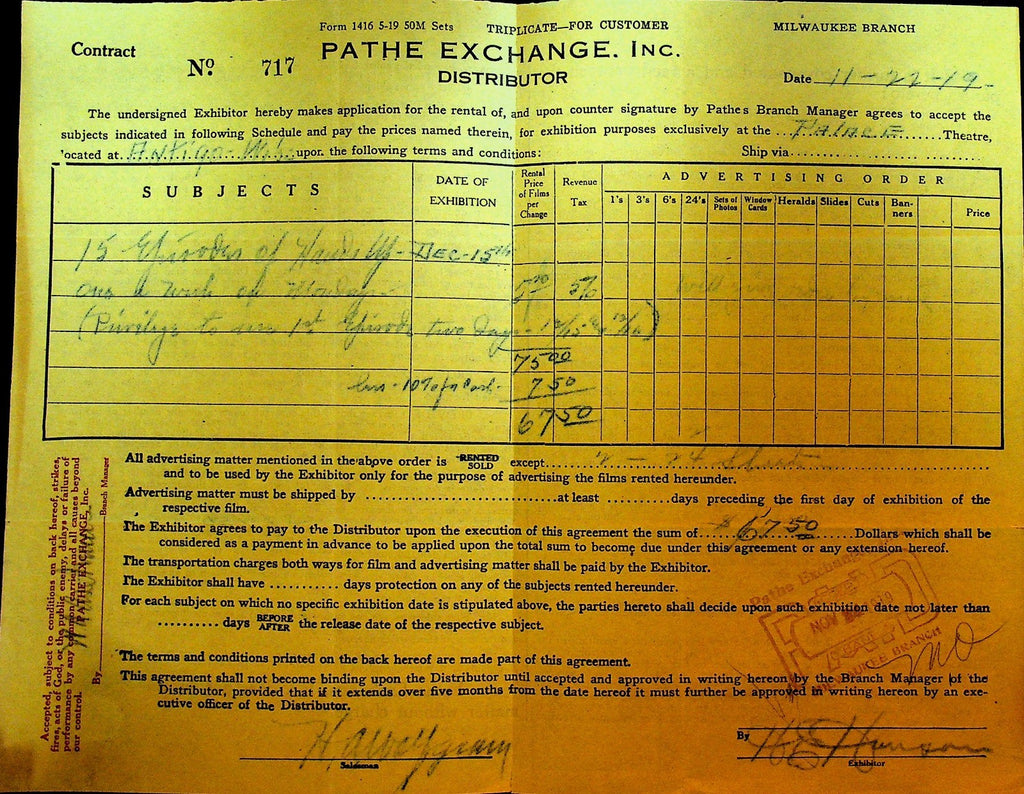 Form 1416 5-19 50M Sets TRIPLICATE—FOR CUSTOMER MILWAUKEE BRANCH
Contract
No 717
PATHE EXCHANGE, INC.
DISTRIBUTOR
Date 11-22-19
The undersigned Exhibitor hereby makes application for the rental of, and upon counter signature by Pathes Branch Manager agrees to accept the
subjects indicated in following Schedule and pay the prices named therein, for exhibition purposes exclusively at the ...PALACE...Theatre,
located at Antigo Wis. upon the following terms and conditions: Ship via
SUBJECTS
DATE OF
EXHIBITION
Rental
Price
of Films
per
Change
Revenue
Tax
ADVERTISING ORDER
1's 3's 6's 24's Sets of Photos Window Cards Heralds Slides Cuts Ban-ners Price
15 Episodes of Hands Up - DEC-15th
one a week on Monday 5%
(Privilege to run 1st Episode two days - 12/15
75 00
less - 10% for Cash. 7 50
67 50
All advertising matter mentioned in the above order is RENTED SOLD except 2 - 24 Sheet
and to be used by the Exhibitor only for the purpose of advertising the films rented hereunder.
Advertising matter must be shipped by ............ at least .......... days preceding the first day of exhibition of the
respective film.
The Exhibitor agrees to pay to the Distributor upon the execution of this agreement the sum of $67 50 Dollars which shall be
considered as a payment in advance to be applied upon the total sum to become due under this agreement or any extension hereof.
The transportation charges both ways for film and advertising matter shall be paid by the Exhibitor.
The Exhibitor shall have ........... days protection on any of the subjects rented hereunder.
For each subject on which no specific exhibition date is stipulated above, the parties hereto shall decide upon such exhibition date not later than
.......... days BEFORE AFTER the release date of the respective subject.
The terms and conditions printed on the back hereof are made part of this agreement.
This agreement shall not become binding upon the Distributor until accepted and approved in writing hereon by the Branch Manager of the
Distributor, provided that if it extends over five months from the date hereof it must further be approved in writing hereon by an exe-
cutive officer of the Distributor.
Salesman
By
Exhibitor
Accepted, subject to conditions on back hereof, strikes,
fires, acts of God, or the public enemy, delays or failure of
performance by any common carrier and all causes beyond
our control. PATHE EXCHANGE, Inc.
By Branch Manager
Pathe Exchange
NOV
MILWAUKEE BRANCH